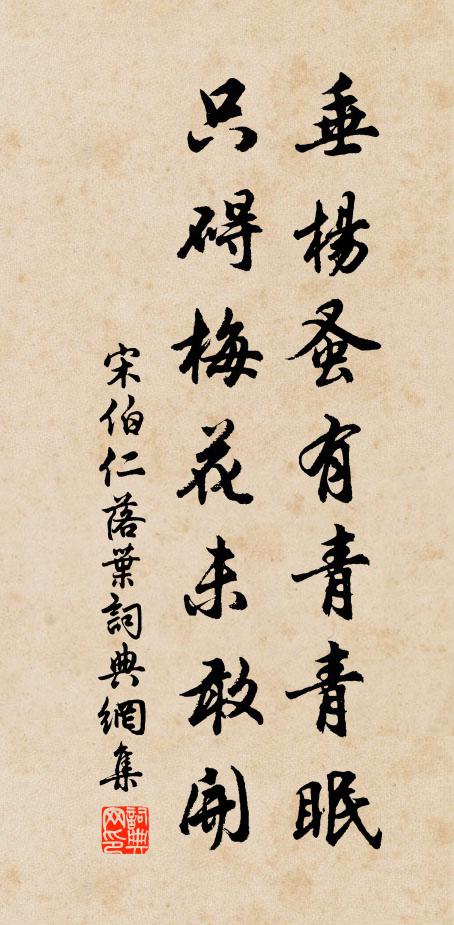 垂楊蚤有青青眠
只碍梅花未敢開
宋伯仁落葉詞典網集
詞典网印